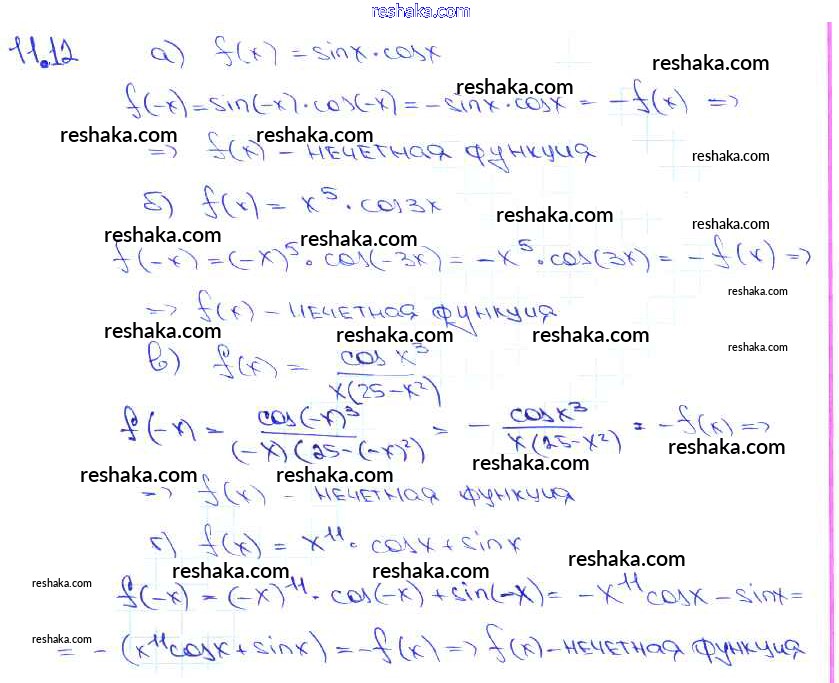 reshaka.com
11.12 а) f(x) = sinx·cosx
reshaka.com
reshaka.com
f(-x) = sin(-x)·cos(-x) = -sinx·cosx = -f(x) =>
reshaka.com reshaka.com
=> f(x) - нечетная функция
reshaka.com
б) f(x) = x⁵·cos3x
reshaka.com
reshaka.com
reshaka.com reshaka.com
f(-x) = (-x)⁵·cos(-3x) = -x⁵·cos(3x) = -f(x) =>
reshaka.com
=> f(x) - нечетная функция
reshaka.com reshaka.com reshaka.com
reshaka.com
в) f(x) = cos x³ / x(25-x²)
f(-x) = cos(-x)³ / (-x)(25-(-x)²) = - cosx³ / x(25-x²) = -f(x) =>
reshaka.com
reshaka.com reshaka.com reshaka.com
=> f(x) - нечетная функция
г) f(x) = x¹¹·cosx + sinx
reshaka.com
reshaka.com reshaka.com
reshaka.com
f(-x) = (-x)¹¹·cos(-x) + sin(-x) = -x¹¹cosx - sinx =
reshaka.com
= -(x¹¹cosx + sinx) = -f(x) => f(x) - нечетная функция